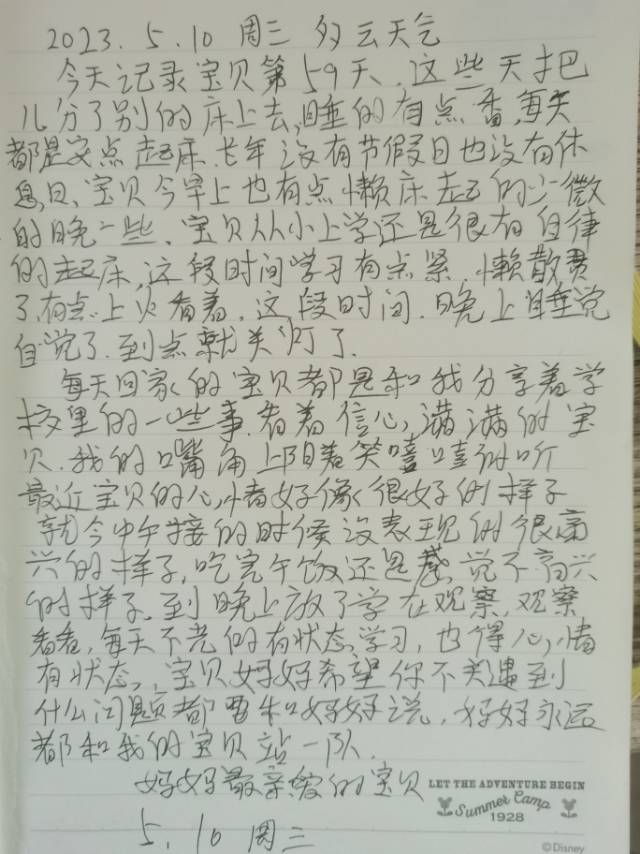 2023.5.10 周三 多云天气
今天记录宝贝第59天.这些天把
儿分了别的床上去,睡的有点香,每天
都是定点起床.长年没有节假日也没有休
息日.宝贝今早上也有点懒床起的少微
的晚一些.宝贝从小上学还是很有自律
的起床,这段时间学习有点紧.懒散贯
了.有点上火看着.这段时间.晚上睡觉
自觉了.到点就关灯了.
每天回家的宝贝都是和我分享着学
校里的一些事.看着信心满满的宝
贝.我的嘴角上阳着笑嘻嘻的听
最近宝贝的心情好像很好的样子
就今中午接的时候没表现的很高
兴的样子,吃完午饭还是感觉不高兴
的样子.到晚上放了学在观察,观察
看看,每天不光的有状态学习,也得心情
有状态,宝贝妈妈希望你不关遇到
什么问题都要和妈妈说,妈妈永远
都和我的宝贝站一队.
妈妈最亲爱的宝贝
5.10 周三
LET THE ADVENTURE BEGIN
Summer Camp
1928
©Disney